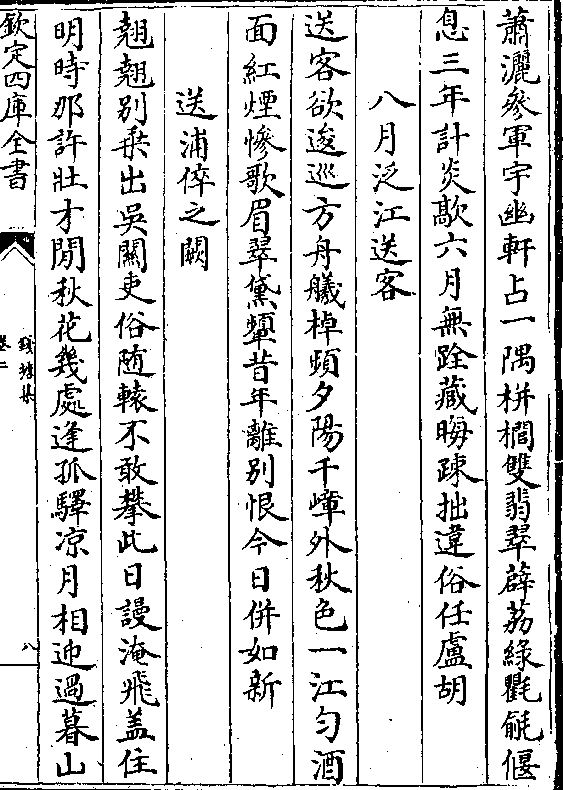 蕭灑參軍宇幽軒占一隅栟櫚雙翡翠薜荔綠氍毹偃
息三年計炎歊六月無跧藏晦疎拙違俗任盧胡
八月泛江送客
送客欲逡巡方舟艤棹頻夕陽千嶂外秋色一江勻酒
面紅煙慘歌眉翠黛顰昔年離別恨今日併如新
送浦倅之闕
翹翹別乗出吳關吏俗随轅不敢攀此日謾淹飛盖住
明時那許壯才閒秋花幾處逢孤驛凉月相迎過暮山
欽定四庫全書
錢塘集
卷二
八